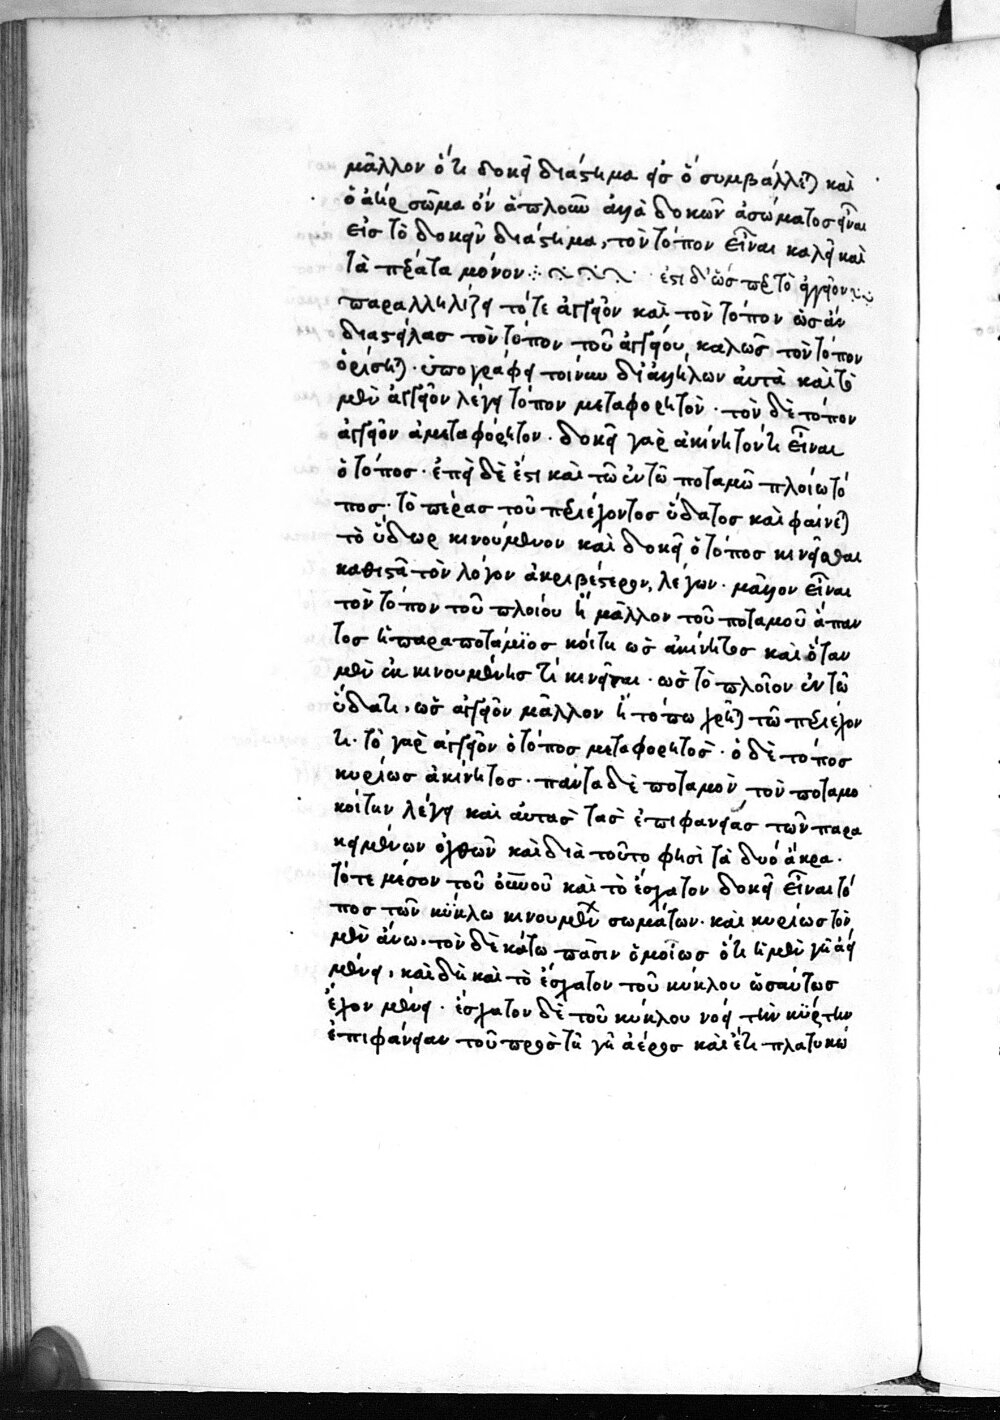 μᾶλλον ὅτι δοκεῖ διάστημα εἰς ὃ συμβάλλεται καὶ
ὁ ἀὴρ σῶμα ὂν ἁπλοῦν ἀλλὰ δοκῶν ἀσώματος εἶναι
εἰς τὸ δοκεῖν διάστημα, τὸν τόπον εἶναι καλεῖ καὶ
τὰ πέρατα μόνον ἔστι δ' ὥσπερ τὸ ἀγγεῖον
παραλληλίζει τότε ἀγγεῖον καὶ τὸν τόπον ὡς ἂν
διαστείλας τὸν τόπον τοῦ ἀγγείου, καλῶς τὸν τόπον
ὁρίσηται. ὑπογράφει τοίνυν δι' ἀλλήλων αὐτὰ καὶ τὸ
μὲν ἀγγεῖον λέγει τόπον μεταφορητὸν. τὸν δὲ τόπον
ἀγγεῖον ἀμεταφόρητον. δοκεῖ γὰρ ἀκίνητόν τι εἶναι
ὁ τόπος. ἐπεὶ δὲ ἔστι καὶ τῶ ἐν τῶ ποταμῶ πλοίω τό
πος. τὸ πέρας τοῦ περιέχοντος ὕδατος καὶ φαίνεται
τὸ ὕδωρ κινούμενον καὶ δοκεῖ ὁ τόπος κινεῖσθαι
καθιστᾶ τὸν λόγον ἀκριβέστερον, λέγων. μᾶλλον εἶναι
τὸν τόπον τοῦ πλοίου ἢ μᾶλλον τοῦ ποταμοῦ ἅπαν
τος ἡ παραποτάμϊος κοίτη ὡς ἀκίνητος καὶ ὅταν
μὲν ἐν κινουμένης τί κινεῖται. ὡς τὸ πλοῖον ἐν τῶ
ὕδατι, ὡς ἀγγεῖον μᾶλλον ἢ τόπω χρῆται τῶ περιέχον
τι. τὸ γὰρ ἀγγεῖον ὁ τόπος μεταφορητὸς. ὁ δὲ τόπος
κυρίως ἀκίνητος. πάντα δὲ ποταμὸν, τὸν ποταμο
κοίτην λέγει καὶ αὐτὰς τὰς ἐπιφανείας τῶν παρα
κειμένων ὀχθῶν καὶ διὰ τοῦτο φησὶ τὰ δυό ἄκρα.
τότε μέσον τοῦ οὐνοῦ καὶ τὸ ἔσχατον δοκεῖ εἶναι τό
πος τῶν κύκλω κινουμένων σωμάτων. καὶ κυρίως τὸν
μὲν ἄνω. τὸν δὲ κάτω πᾶσιν ὁμοίως ὅτι ἡ μὲν γῆ ἀεὶ
μένει, καὶ δὴ καὶ τὸ ἔσχατον τοῦ κύκλου ὡσαύτως
ἔχον μένει. ἔσχατον δὲ τοῦ κύκλου νοεῖ τὴν κϋρτὴν
ἐπιφάνειαν τοῦ πρὸς τῆ γῆ ἀέρος καὶ ἔτι πλατυκώ